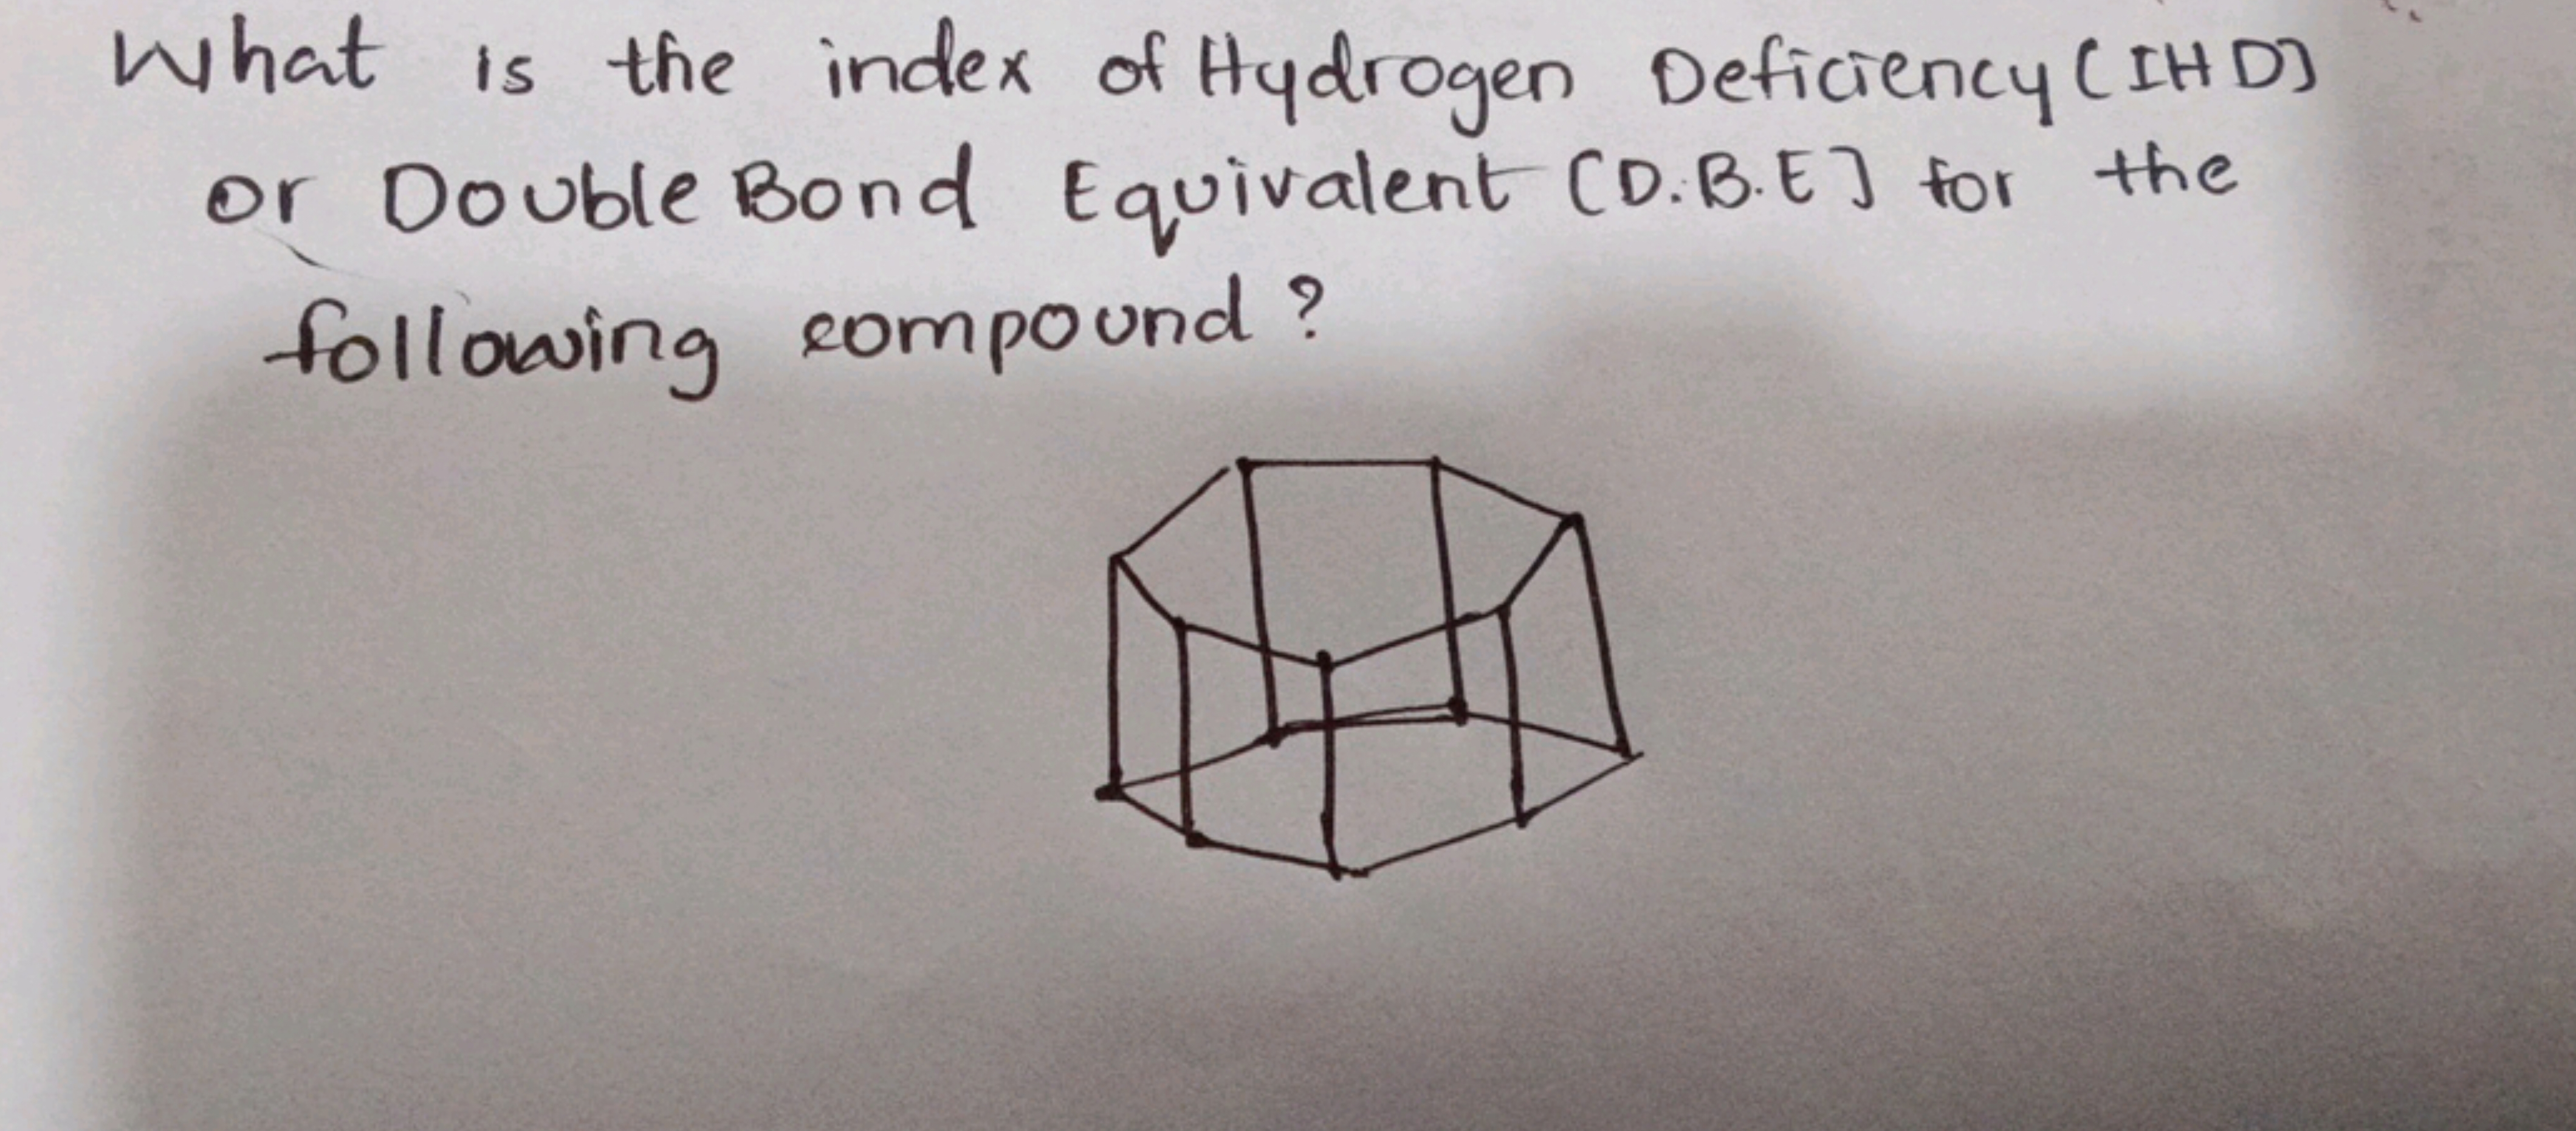 What is the index of Hydrogen Deficiency (IHD)
or Double Bond Equivalent [D.B.E] for the
following compound?